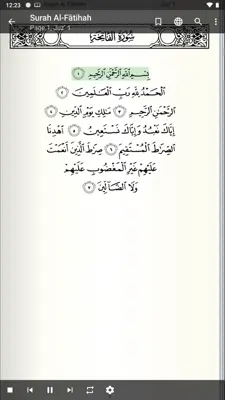 12:23
Surah Al-Fātihah
Page 1, Juz' 1
سُورَةُ الْفَاتِحَةِ
بِسْمِ اللَّهِ الرَّحْمَٰنِ الرَّحِيمِ ١
الْحَمْدُ لِلَّهِ رَبِّ الْعَالَمِينَ ٢
الرَّحْمَٰنِ الرَّحِيمِ ٣ مَالِكِ يَوْمِ الدِّينِ ٤
إِيَّاكَ نَعْبُدُ وَإِيَّاكَ نَسْتَعِينُ ٥ اهْدِنَا
الصِّرَاطَ الْمُسْتَقِيمَ ٦ صِرَاطَ الَّذِينَ أَنْعَمْتَ
عَلَيْهِمْ غَيْرِ الْمَغْضُوبِ عَلَيْهِمْ
وَلَا الضَّالِّينَ ٧